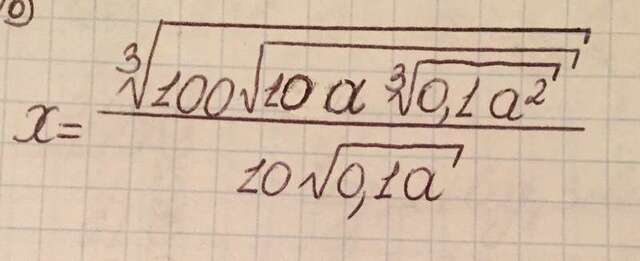 б)
x = ∛(100√(10a∛(0,1a²)))
10√(0,1a)